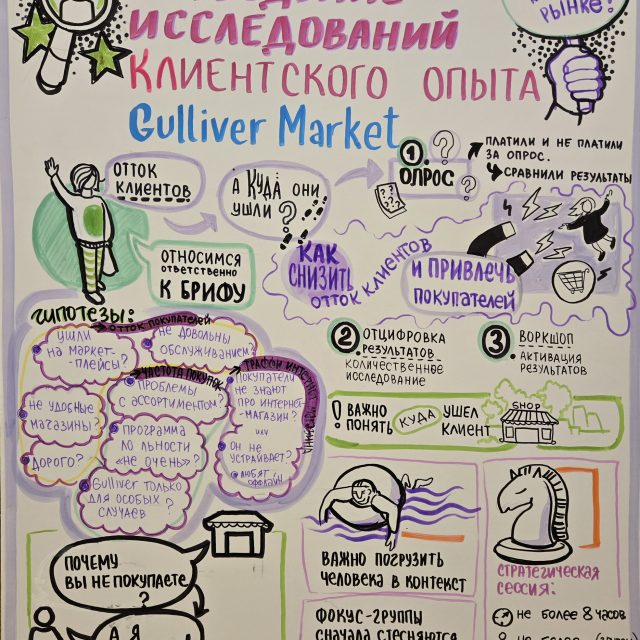 ИССЛЕДОВАНИЙ
КЛИЕНТСКОГО ОПЫТА
Gulliver Market
РЫНКЕ!
ОТТОК
КЛИЕНТОВ
А КУДА ОНИ
УШЛИ ?
1. ОПРОС
?
?
ПЛАТИЛИ И НЕ ПЛАТИЛИ
ЗА ОПРОС.
СРАВНИЛИ РЕЗУЛЬТАТЫ
ОТНОСИМСЯ
ОТВЕТСТВЕННО
К БРИФУ
КАК
СНИЗИТЬ
ОТТОК КЛИЕНТОВ
И ПРИВЛЕЧЬ
ПОКУПАТЕЛЕЙ
ГИПОТЕЗЫ:
ОТТОК ПОКУПАТЕЛЕЙ
УШЛИ
НА МАРКЕТ-
-ПЛЕЙСЫ?
НЕ ДОВОЛЬНЫ
ОБСЛУЖИВАНИЕМ?
ЧАСТОТА ПОКУПОК
ПРОБЛЕМЫ
С АССОРТИМЕНТОМ?
НЕ УДОБНЫЕ
МАГАЗИНЫ?
ПРОГРАММА
ЛО ЛЬНОСТИ
«НЕ ОЧЕНЬ» ?
ДОРОГО?
Gulliver ТОЛЬКО
ДЛЯ ОСОБЫХ
СЛУЧАЕВ ?
ПОКУПАТЕЛИ
НЕ ЗНАЮТ
ПРО ИНТЕРНЕТ-
-МАГАЗИН?
ИЛИ
ОН НЕ
УСТРАИВАЕТ?
ЛЮБЯТ
ОФФЛАЙН
2. ОТЦИФРОВКА
РЕЗУЛЬТАТОВ
КОЛИЧЕСТВЕННОЕ
ИССЛЕДОВАНИЕ
3. ВОРКШОП
АКТИВАЦИЯ
РЕЗУЛЬТАТОВ
! ВАЖНО
ПОНЯТЬ
КУДА
УШЕЛ
КЛИЕНТ
SHOP
ПОЧЕМУ
ВЫ НЕ ПОКУПАЕТЕ
?
А Я
ВАЖНО ПОГРУЗИТЬ
ЧЕЛОВЕКА В КОНТЕКСТ
ФОКУС-ГРУППЫ
СНАЧАЛА СТЕСНЯЮТСЯ
СТРАТЕГИЧЕСКАЯ
СЕССИЯ:
НЕ БОЛЕЕ 8 ЧАСОВ
НЕ БОЛЕЕ